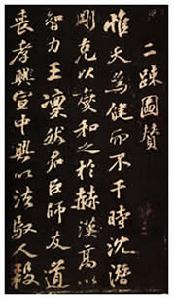 二疎圖贊
惟天為健而不干時沈潛
剛克以燮和之於赫漢高以
智力王凜然君臣師友道
喪孝興宣中興以法馭人殺